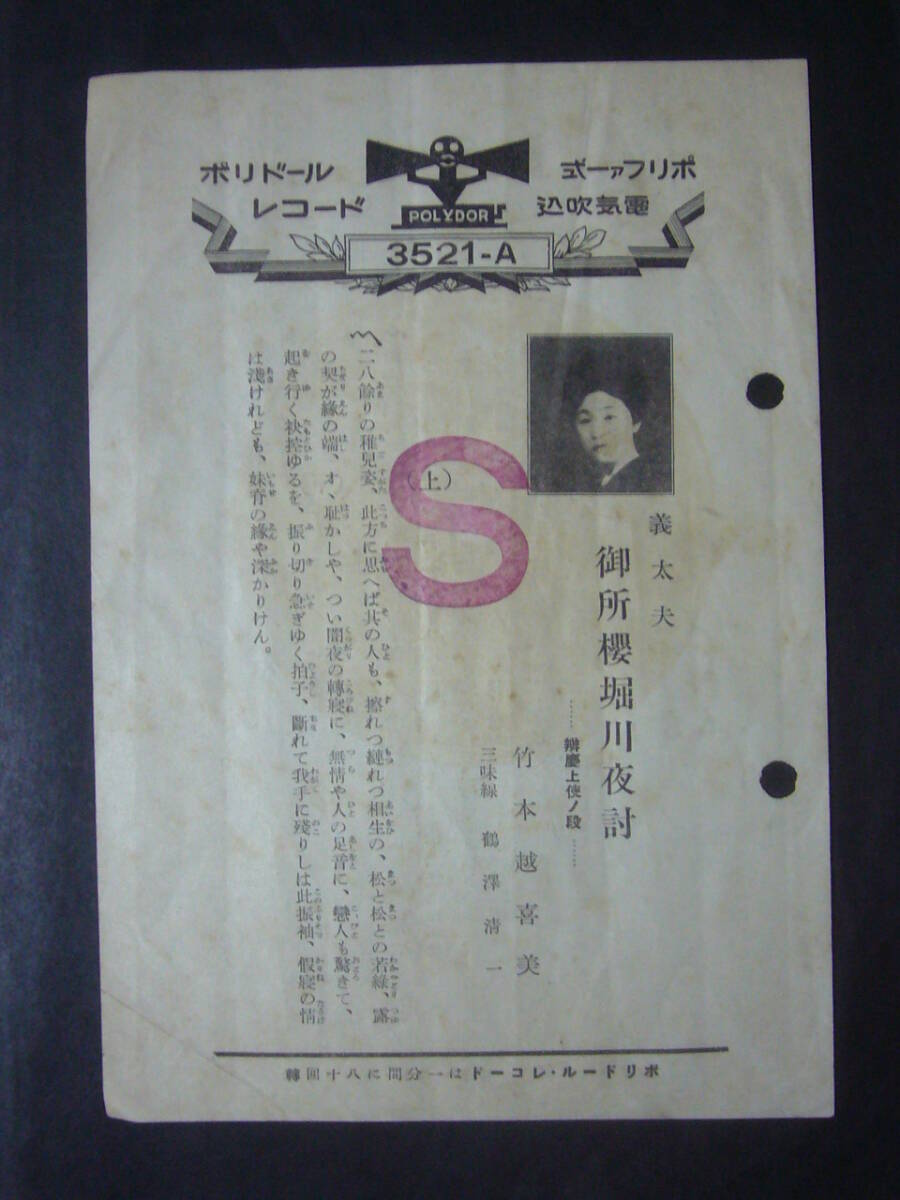 ポリドール
レコード
ポリファー式
電氣吹込
POLYDOR
3521-A
義太夫
御所櫻堀川夜討
……辯慶上使ノ段……
竹本越喜美
三味線 鶴澤清一
(上)
S
〽二八餘りの稚兒姿、此方に思へば其の人も、擦れつ縺れつ相生の、松と松との若綠、露
の契が緣の端、オヽ恥かしや、つい闇夜の轉寢に、無情や人の足音に、戀人も驚きて、
起き行く袂控ゆるを、振り切り急ぎゆく拍子、斷れて我手に殘りしは此振袖、假寢の情
は淺けれども、妹脊の緣や深かりけん。
ポリドール・レコードは一分間に八十回轉